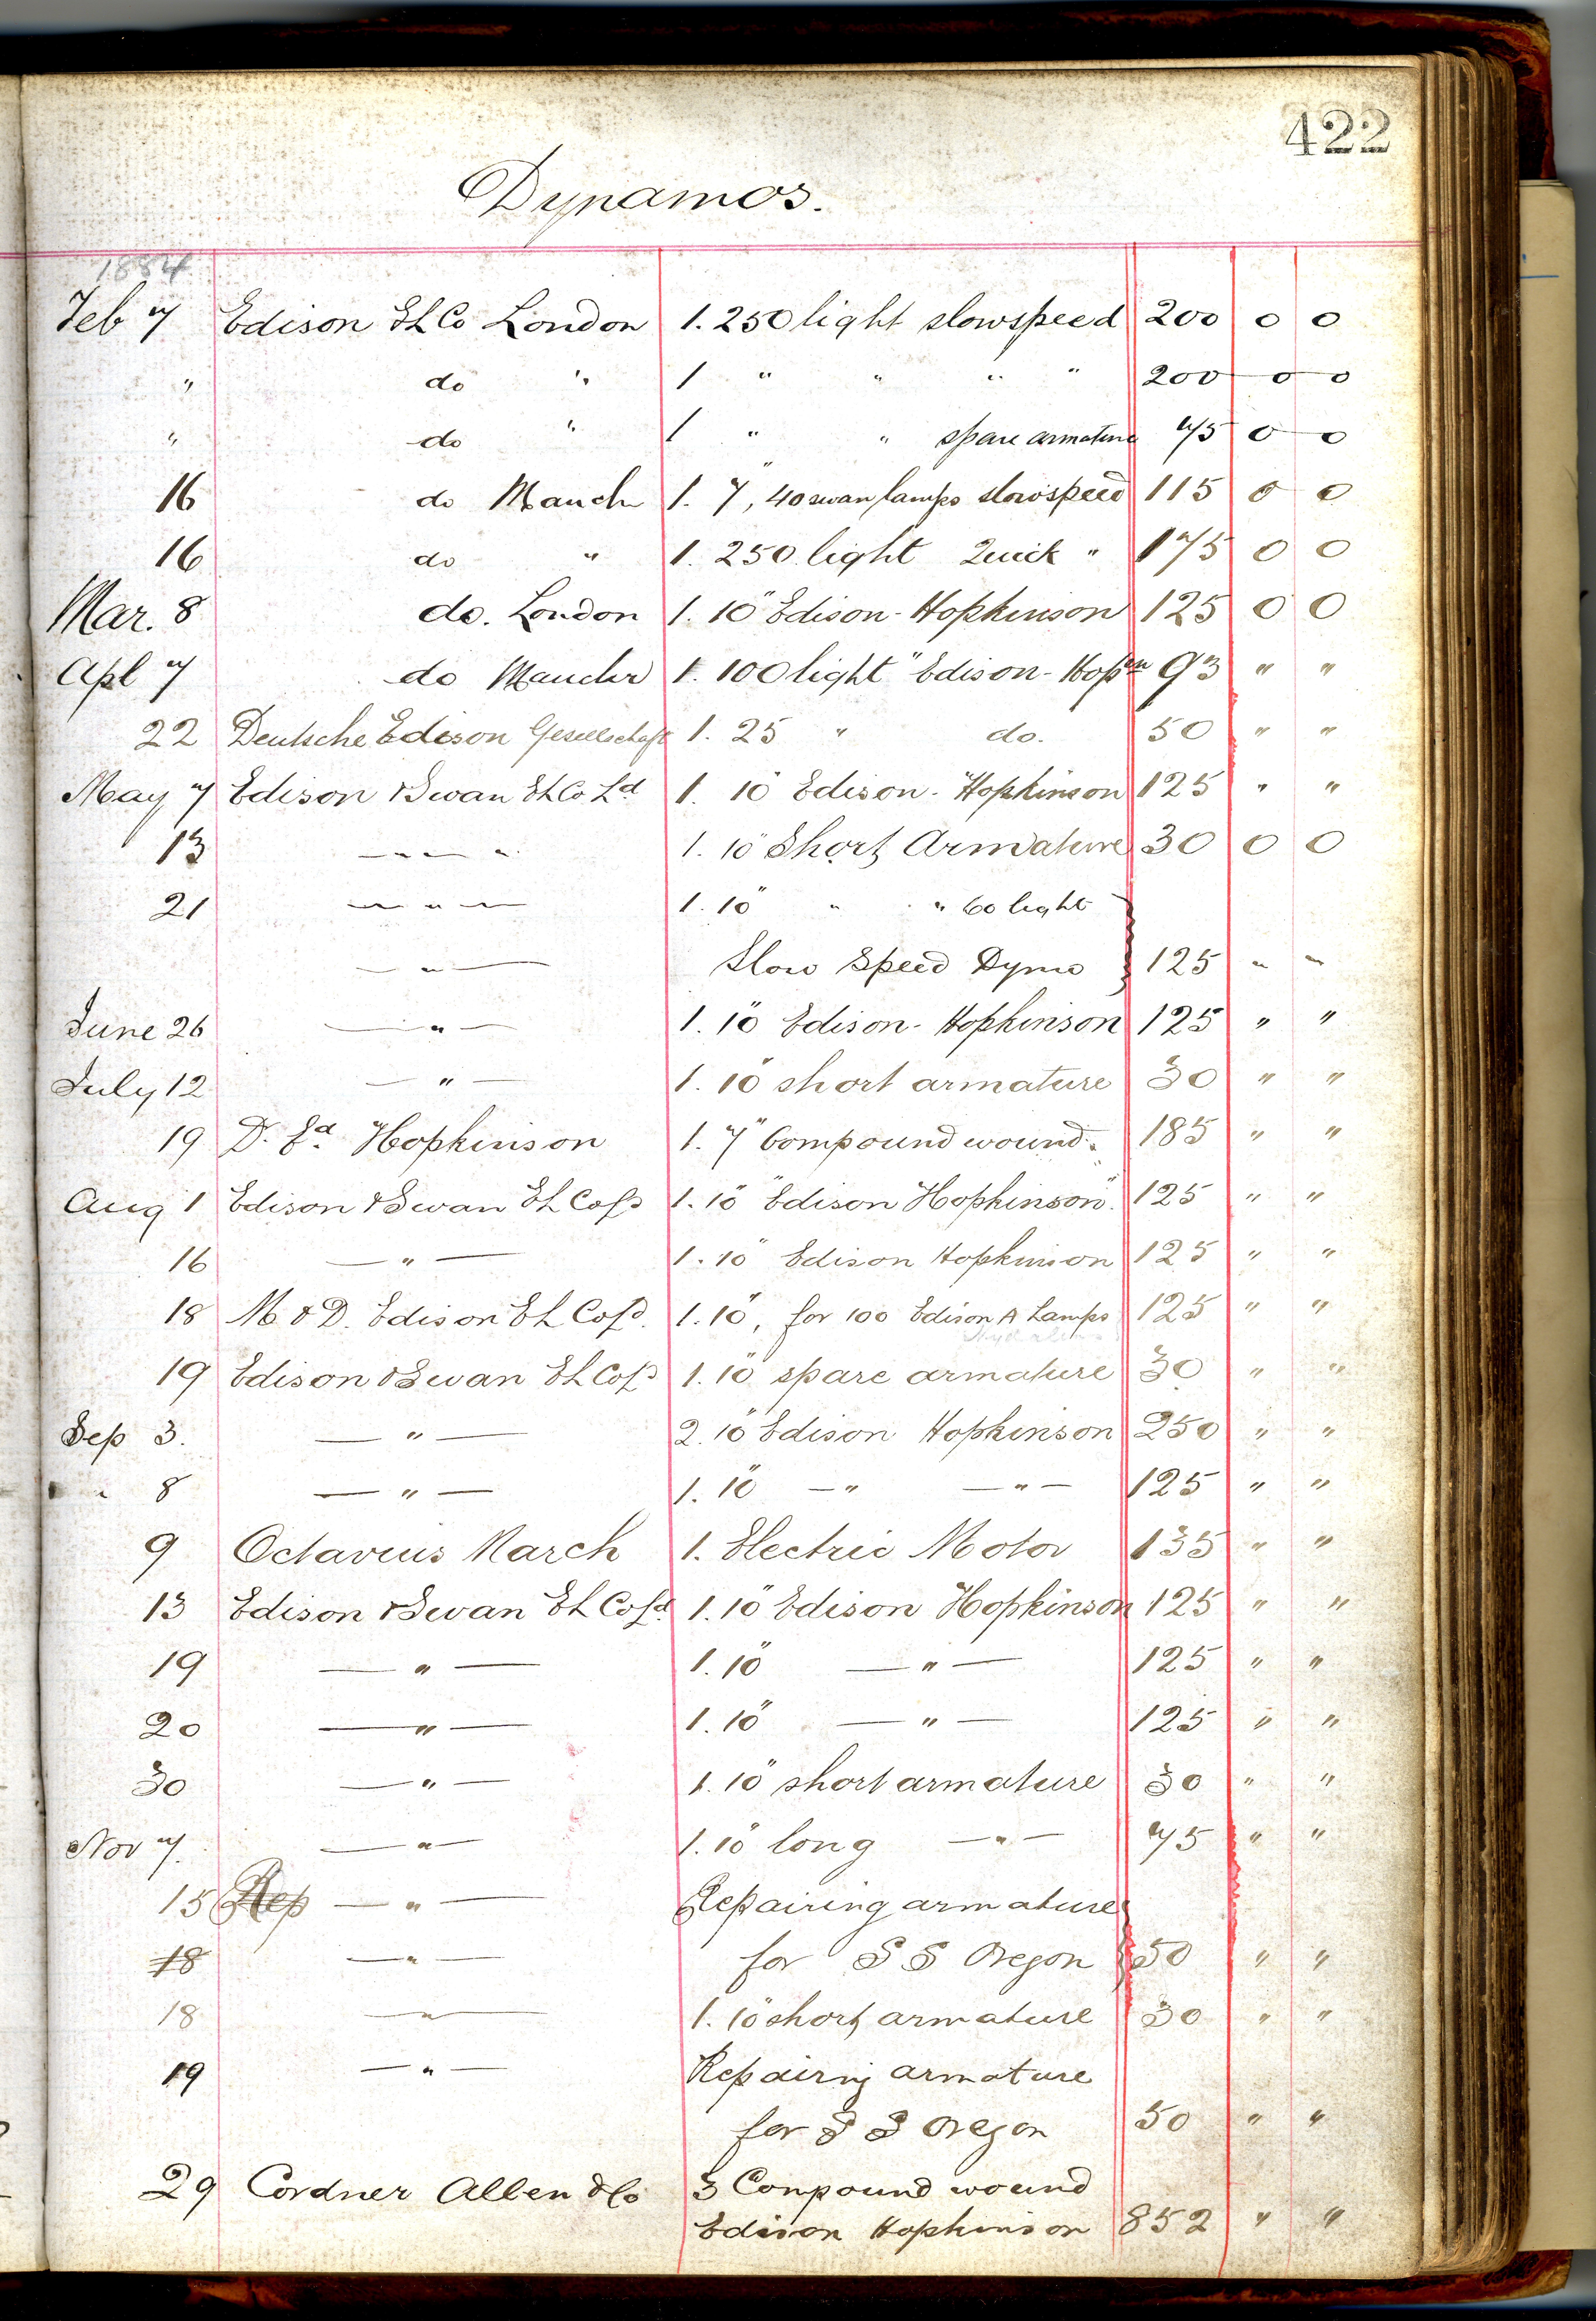 422
Dynamos.
1884
Feb 7 Edison El Co London 1. 250 light slowspeed 200 0 0
" do " 1 " " " " 200 0 0
" do " 1 " " spare armature 75 0 0
16 do Manch 1. 7", 40 swan lamps slowspeed 115 0 0
16 do " 1. 250 light Quick " 175 0 0
Mar. 8 do. London 1. 10" Edison-Hopkinson 125 0 0
Apl 7 do Manchr 1. 100 light "Edison-Hopn 93 " "
22 Deutsche Edison Gesellschaft 1. 25 " do. 50 " "
May 7 Edison & Swan El Co Ld 1. 10" Edison-Hopkinson 125 " "
13 — " — " 1. 10" Short Armature 30 0 0
21 — " — 1. 10" " " 60 light
— " — Slow Speed Dymo } 125 " "
June 26 — " — 1. 10" Edison-Hopkinson 125 " "
July 12 — " — 1. 10" short armature 30 " "
19 Dr. Ed. Hopkinson 1. 7" Compound wound. 185 " "
Aug 1 Edison & Swan El Co Ld 1. 10" "Edison Hopkinson". 125 " "
16 — " — 1. 10" Edison Hopkinson 125 " "
18 M & D. Edison El Co Ld. 1. 10", for 100 Edison A Lamps 125 " "
19 Edison & Swan El Co Ld 1. 10" spare armature 30 " "
Sep 3. — " — 2. 10" Edison Hopkinson 250 " "
" 8 — " — 1. 10" — " — " — 125 " "
9 Octavius March 1. Electric Motor 135 " "
13 Edison & Swan El Co Ld 1. 10" Edison Hopkinson 125 " "
19 — " — 1. 10" — " — 125 " "
20 — " — 1. 10" — " — 125 " "
30 — " — 1. 10" short armature 30 " "
Nov 7. — " — 1. 10" long — " — 75 " "
15 Rep — " — Repairing armature
18 — " — for S S Oregon } 50 " "
18 — " — 1. 10" short armature 30 " "
19 — " — Repairing armature
for S S Oregon 50 " "
29 Cordner Allen & Co 3 Conpound wound
Edison Hopkinson 852 " "